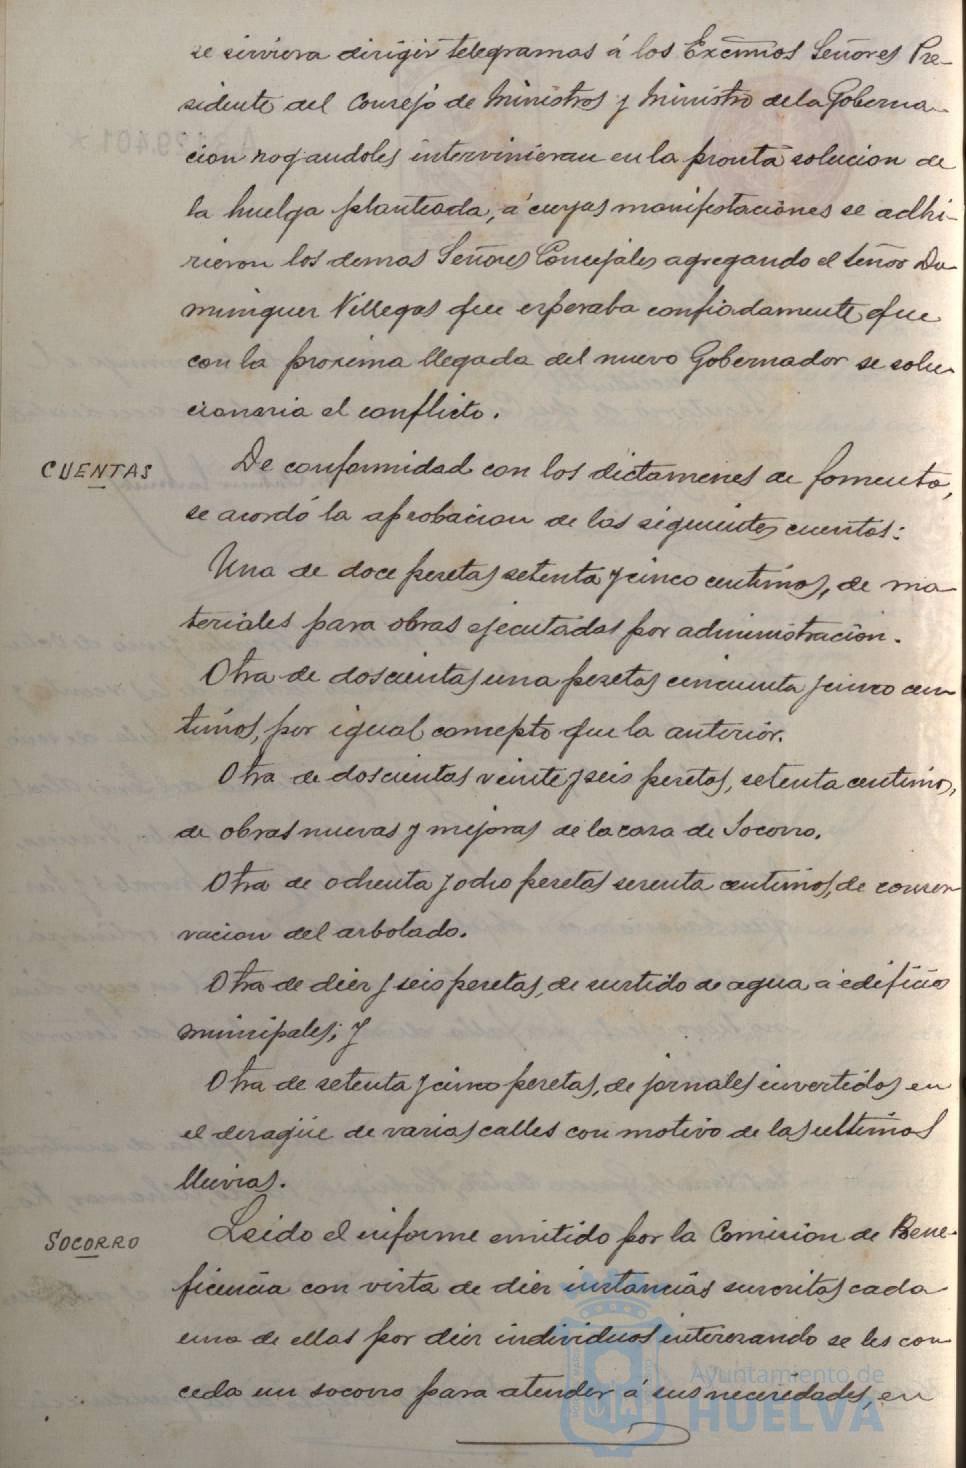 se sirviera dirigir telegramas á los Excmos Señores Pre-
sidente del Consejo de Ministros y Ministro de la Goberna-
cion rogandoles intervinieran en la pronta solucion de
la huelga planteada, á cuyas manifestaciones se adhi-
rieron los demas Señores Concejales agregando el señor Do
minguez Villegas que esperaba confiadamente que
con la proxima llegada del nuevo Gobernador se solu-
cionaria el conflicto.
CUENTAS
De conformidad con los dictamenes de fomento,
se acordó la aprobacion de las siguientes cuentas:
Una de doce pesetas setenta y cinco centimos, de ma-
teriales para obras ejecutadas por administracion.
Otra de doscientas una pesetas cincuenta y cinco cen-
timos, por igual concepto que la anterior.
Otra de doscientas veinte y seis pesetas, setenta centimos,
de obras nuevas y mejoras de la casa de Socorro.
Otra de ochenta y ocho pesetas sesenta centimos, de conser-
vacion del arbolado.
Otra de diez y seis pesetas, de surtido de agua a edificios
municipales; y
Otra de setenta y cinco pesetas, de jornales invertidos en
el desagüe de varias calles con motivo de las ultimas
lluvias.
SOCORRO
Leido el informe emitido por la Comision de Bene-
ficencia con vista de diez instancias suscritas cada
una de ellas por diez individuos interesando se les con-
ceda un socorro para atender á sus necesidades, en
Ayuntamiento de
HUELVA